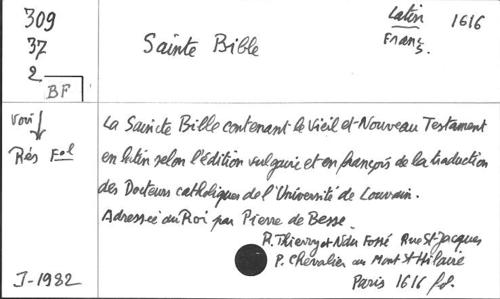 309
37
2
BF
Sainte Bible
Latin 1616
Franç.
voir
Rés Fol
La Saincte Bible contenant le Vieil et Nouveau Testament
en latin selon l'édition vulguire et en françois de la traduction
des Docteurs catholiques de l'Université de Louvain.
Adressée au Roi par Pierre de Besse.
R. Thierry et N. du Fossé Rue St Jacques
P. Chevalier au Mont St Hilaire
Paris 1616 fol.
J-1982